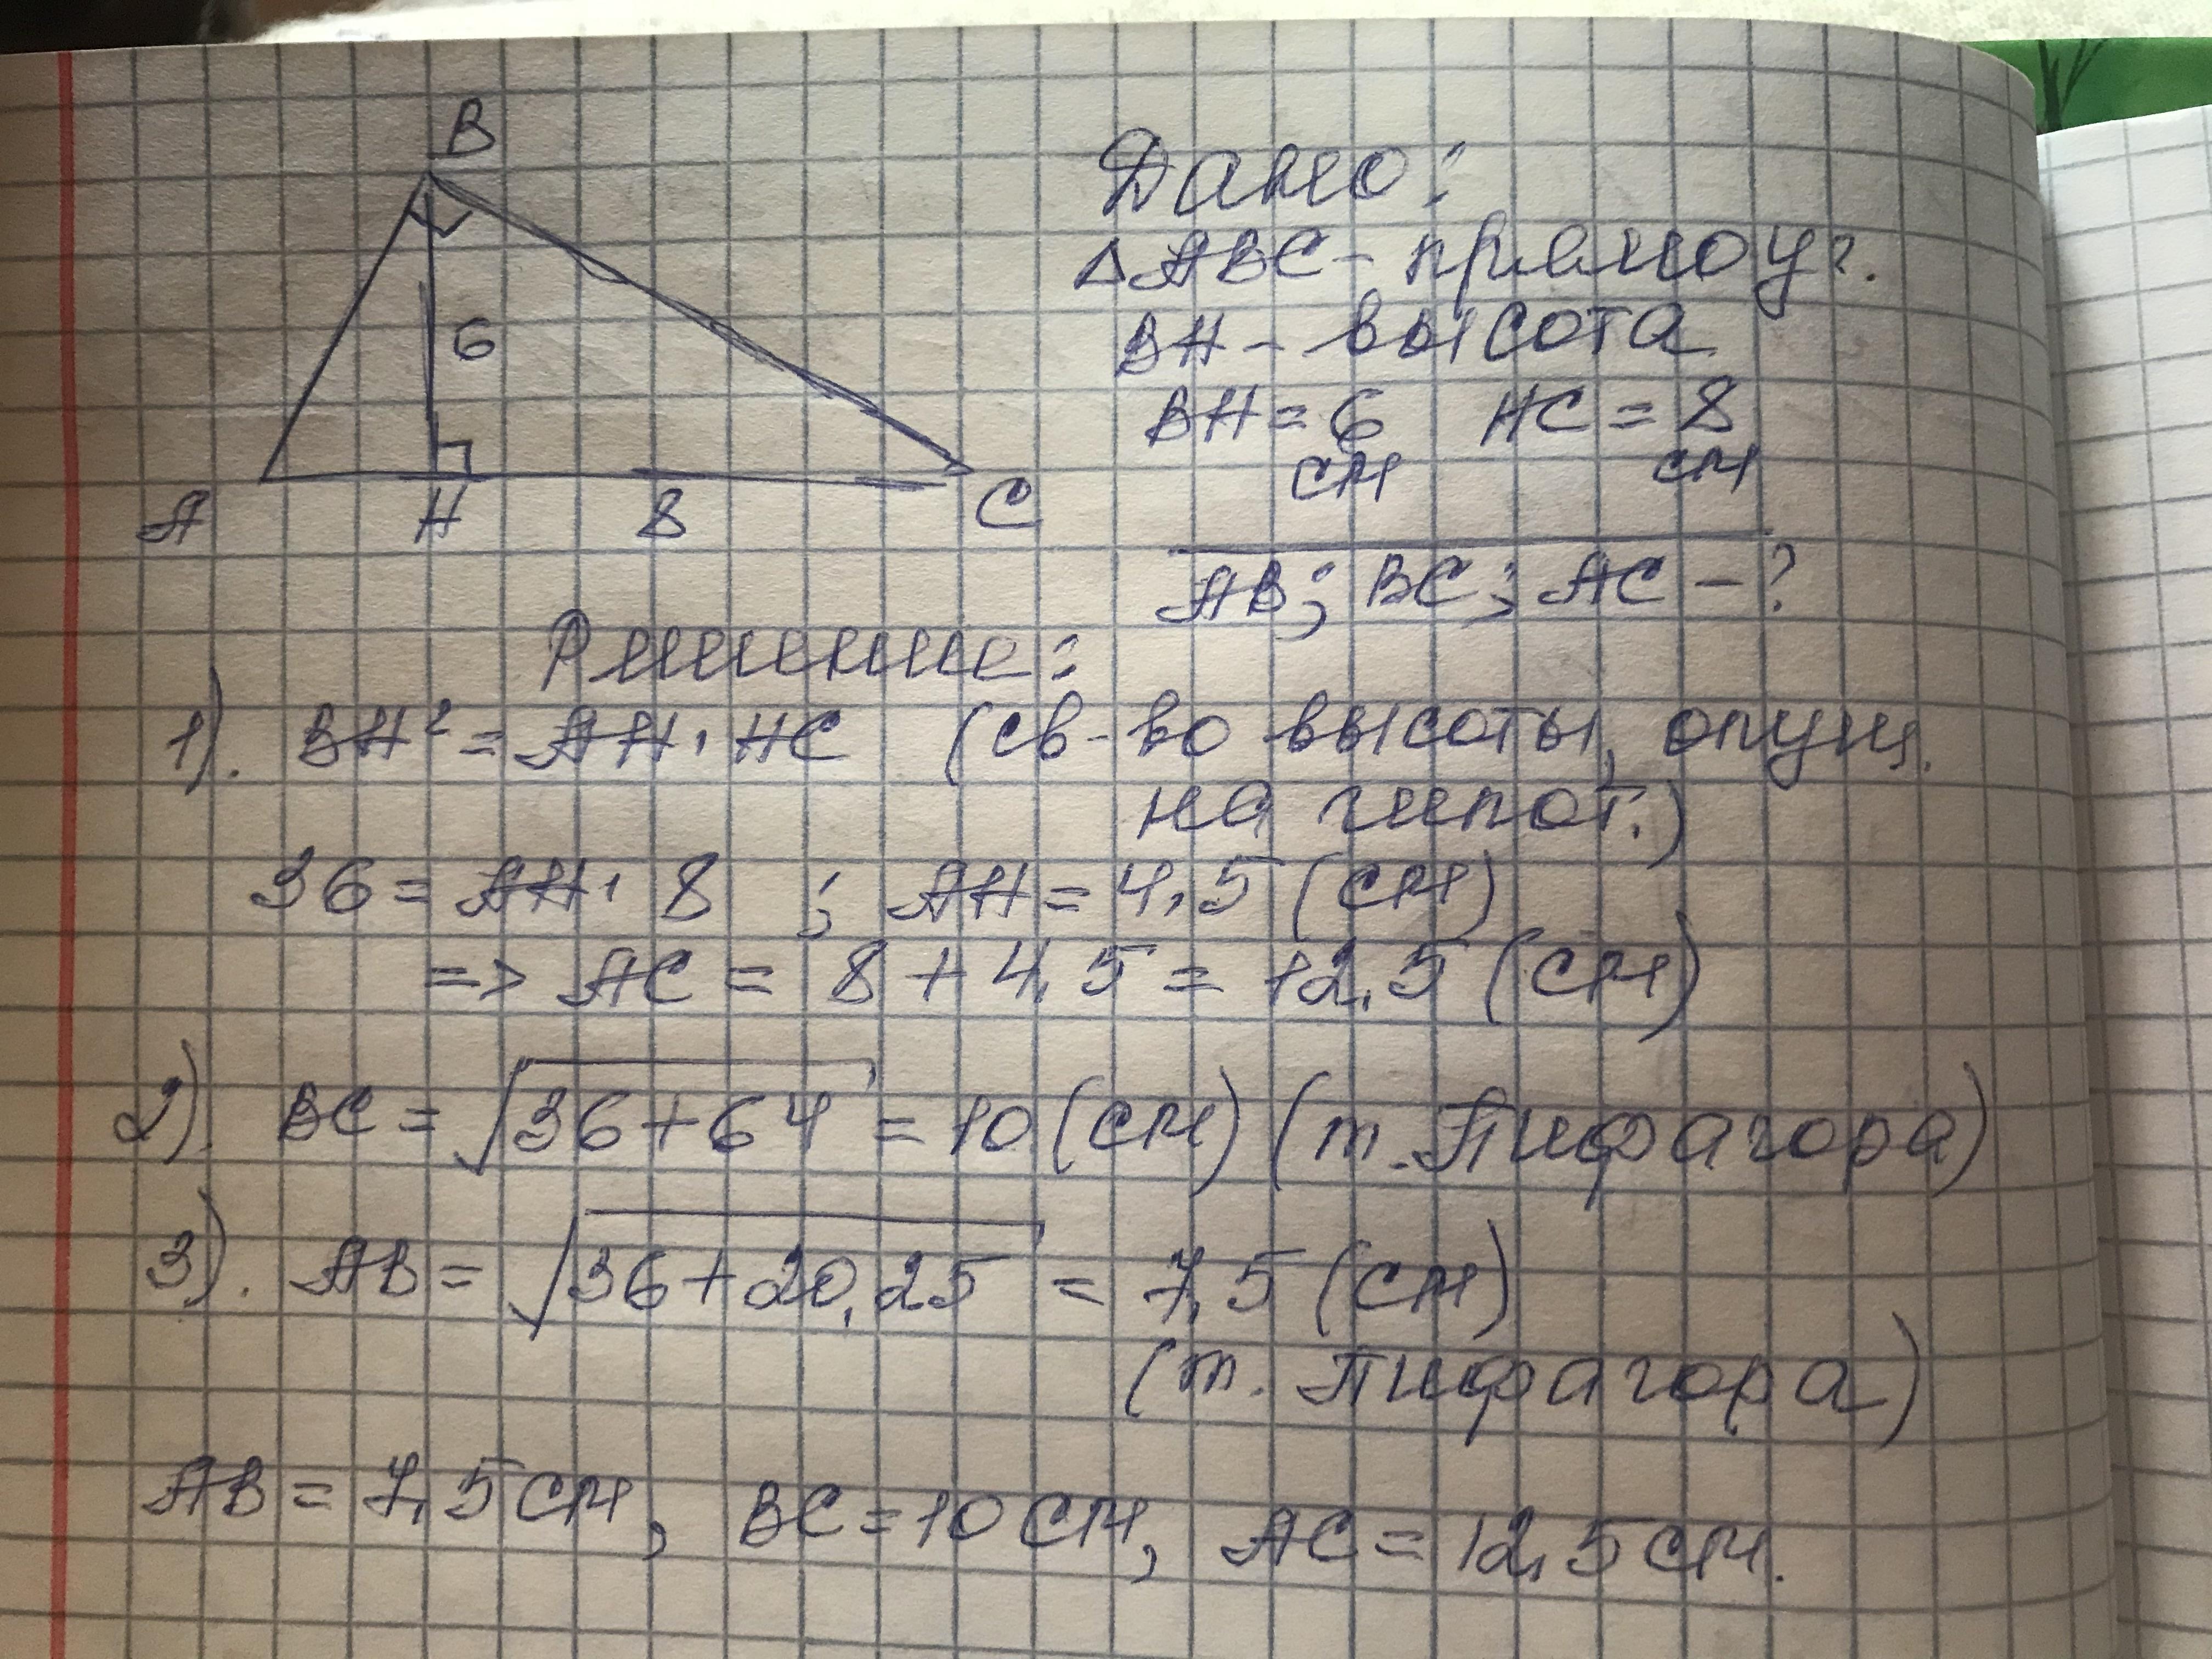 B
6
A H 8 C
Дано:
△ABC - прямоуг.
BH - высота
BH = 6 HC = 8
см см
AB; BC; AC - ?
Решение:
1). BH² = AH · HC (св-во высоты, опущ.
на гипот.)
36 = AH · 8 ; AH = 4,5 (см)
=> AC = 8 + 4,5 = 12,5 (см)
2). BC = √36+64 = 10 (см) (т. Пифагора)
3). AB = √36+20,25 = 7,5 (см)
(т. Пифагора)
AB = 7,5 см, BC = 10 см, AC = 12,5 см.